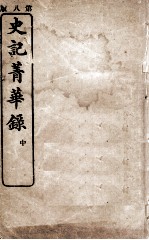 第八版
史記菁華錄
中